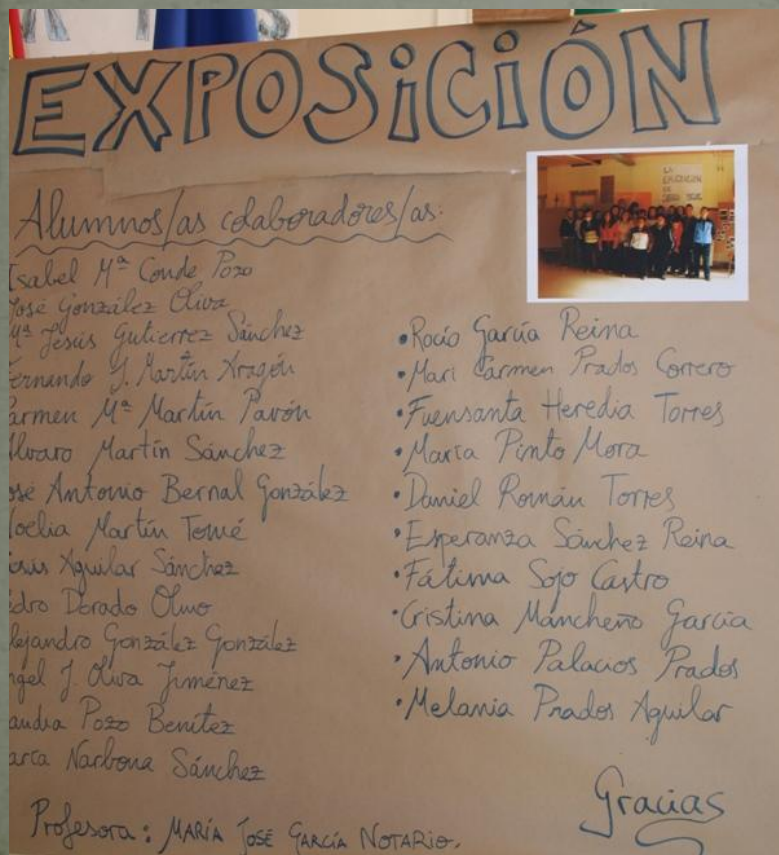 EXPOSICIÓN
Alumnos/as colaboradores/as:
Isabel Mª Conde Pozo
José González Oliva
Mª Jesús Gutierrez Sánchez
Fernando J. Martín Aragón
Carmen Mª Martín Pavón
Álvaro Martín Sánchez
José Antonio Bernal González
Noelia Martín Tomé
Aguilar Sánchez
Pedro Dorado Olmo
Alejandro González González
Ángel J. Oliva Jiménez
Claudia Pozo Benítez
Narbona Sánchez
• Rocío García Reina
• Mari Carmen Prados Correro
• Fuensanta Heredia Torres
• María Pinto Mora
• Daniel Román Torres
• Esperanza Sánchez Reina
• Fátima Sojo Castro
• Cristina Mancheño García
• Antonio Palacios Prados
• Melania Prados Aguilar
Gracias
Profesora: MARÍA JOSÉ GARCÍA NOTARIO.